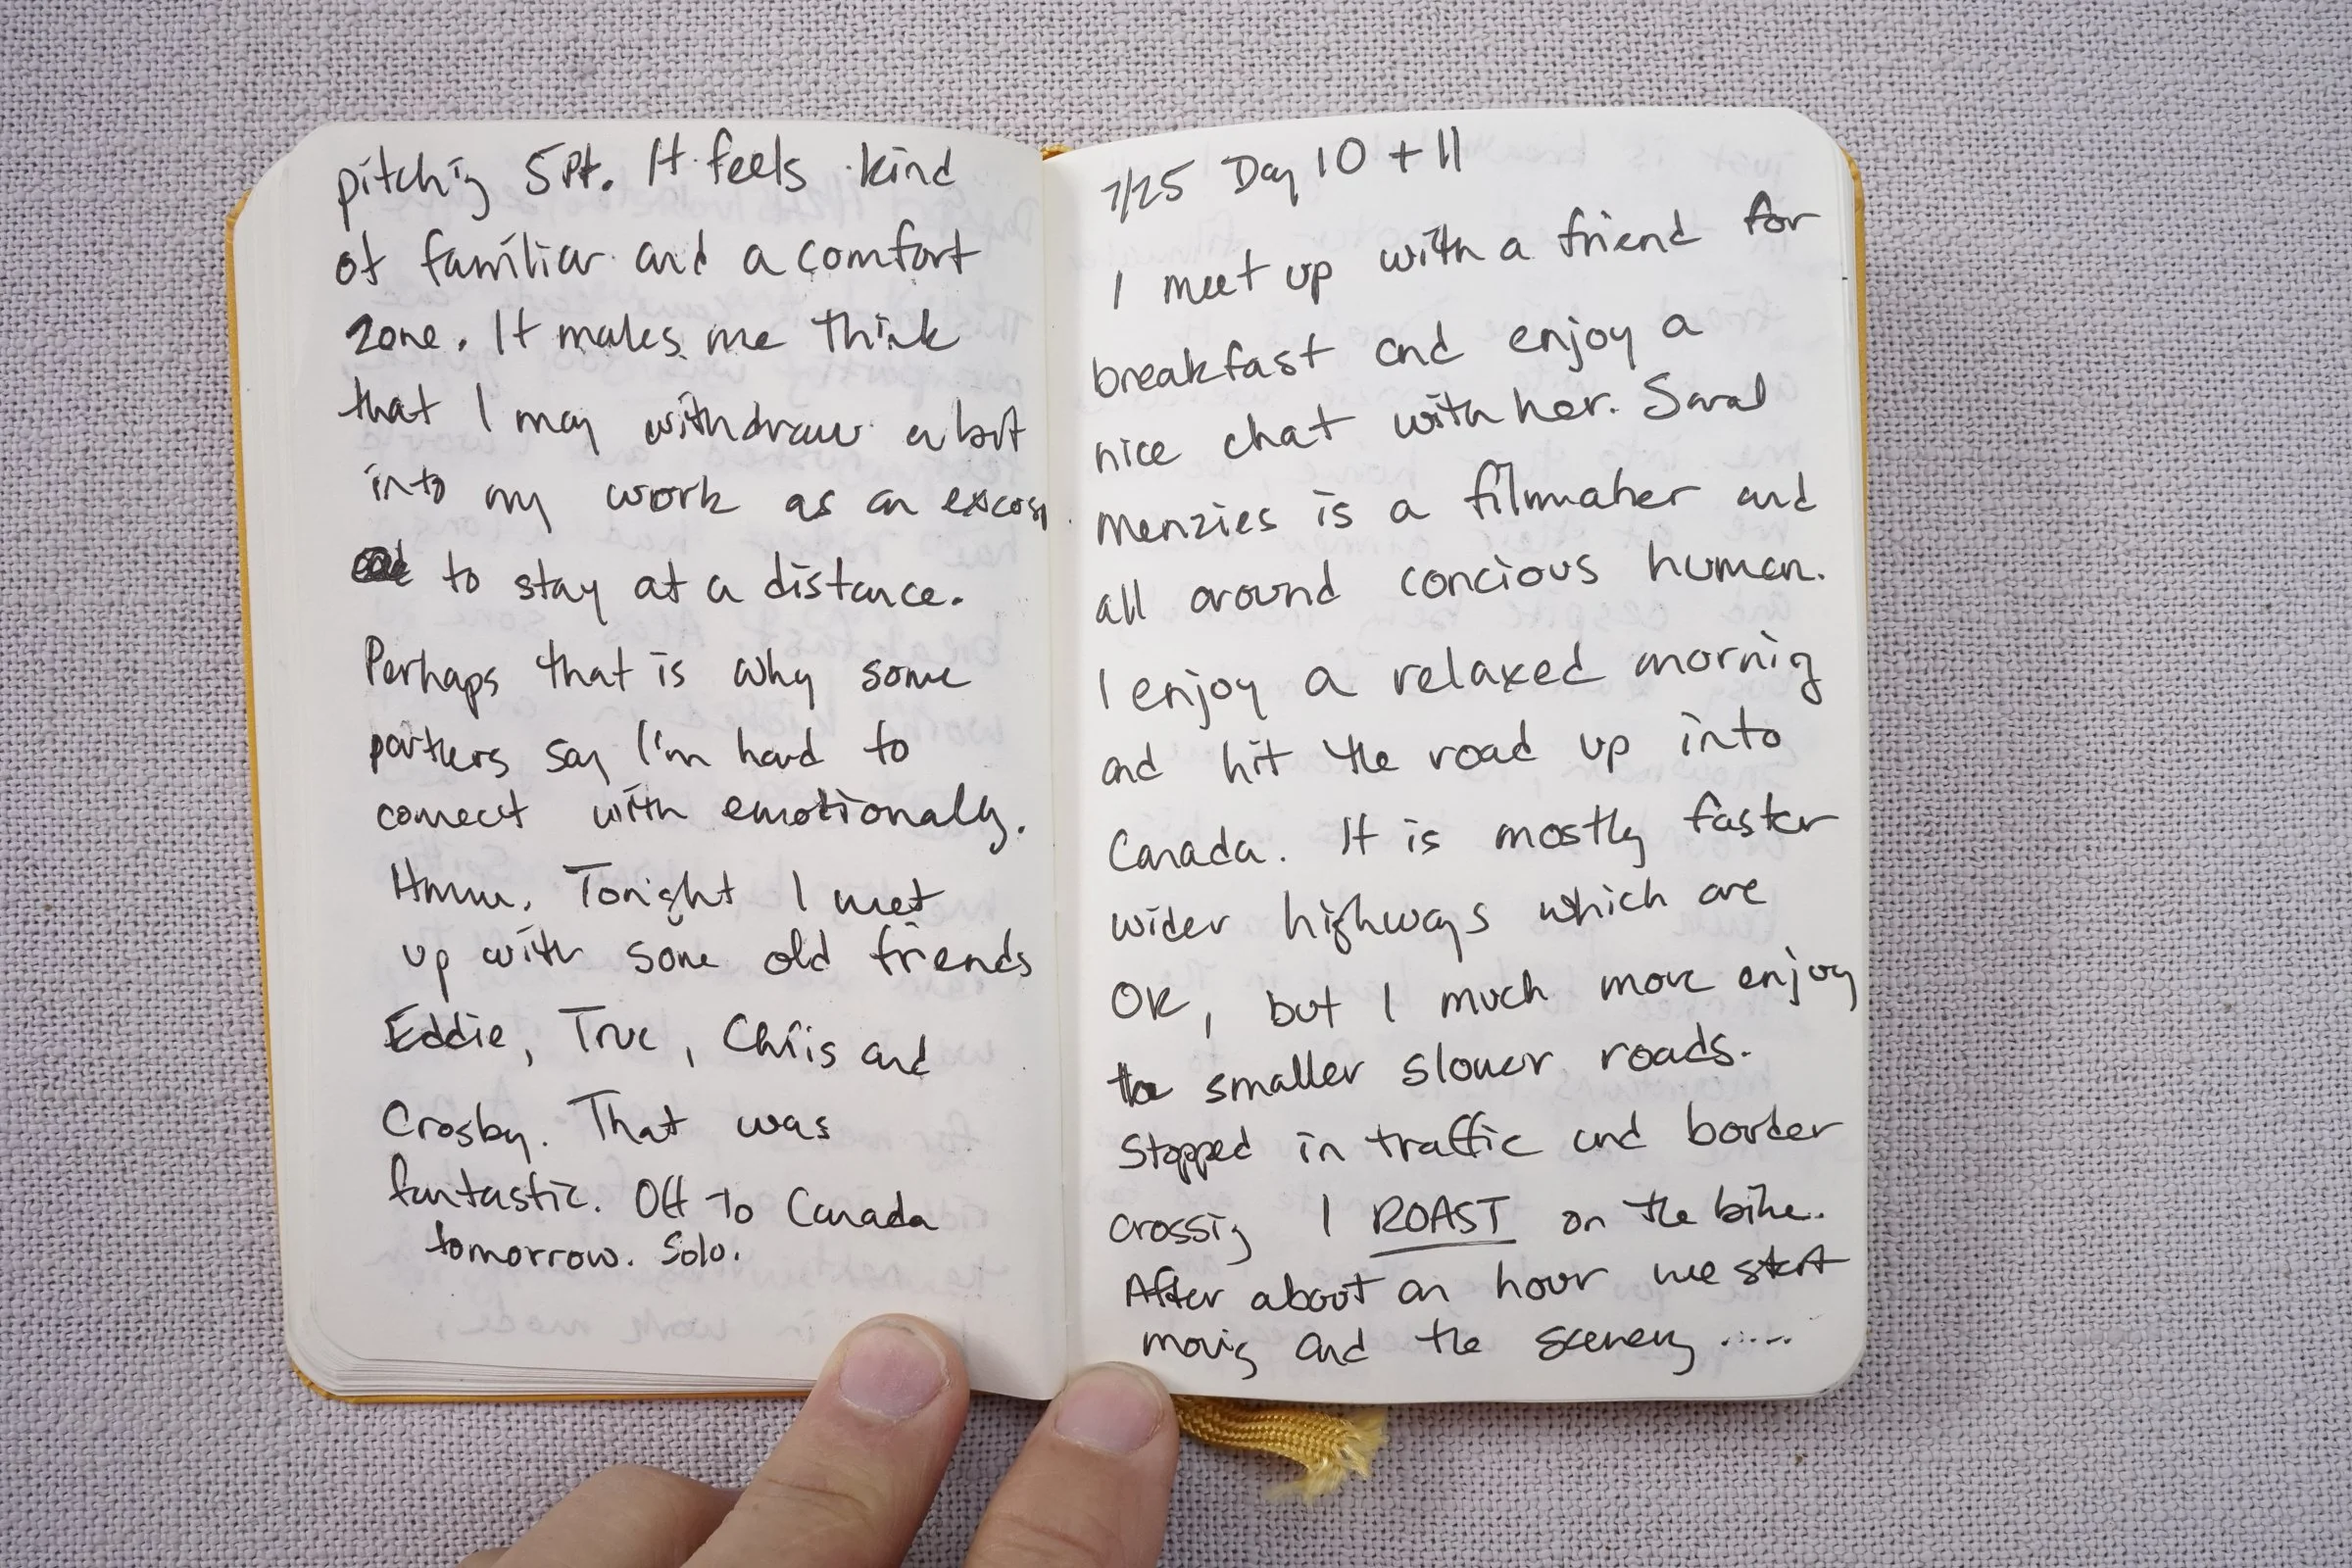 pitching 5Pt. It feels kind
of familiar and a comfort
zone. It makes me think
that I may withdraw a bit
into my work as an excuse
to stay at a distance.
Perhaps that is why some
partners say I'm hard to
connect with emotionally.
Hmm. Tonight I met
up with some old friends
Eddie, True, Chris and
Crosby. That was
fantastic. Off to Canada
tomorrow. Solo.
7/25 Day 10 + 11
I meet up with a friend for
breakfast and enjoy a
nice chat with her. Sarah
Menzies is a filmmaker and
all around concious human.
I enjoy a relaxed morning
and hit the road up into
Canada. It is mostly faster
wider highways which are
OK, but I much more enjoy
the smaller slower roads.
Stopped in traffic and border
crossing I ROAST on the bike.
After about an hour we start
moving and the scenery .....